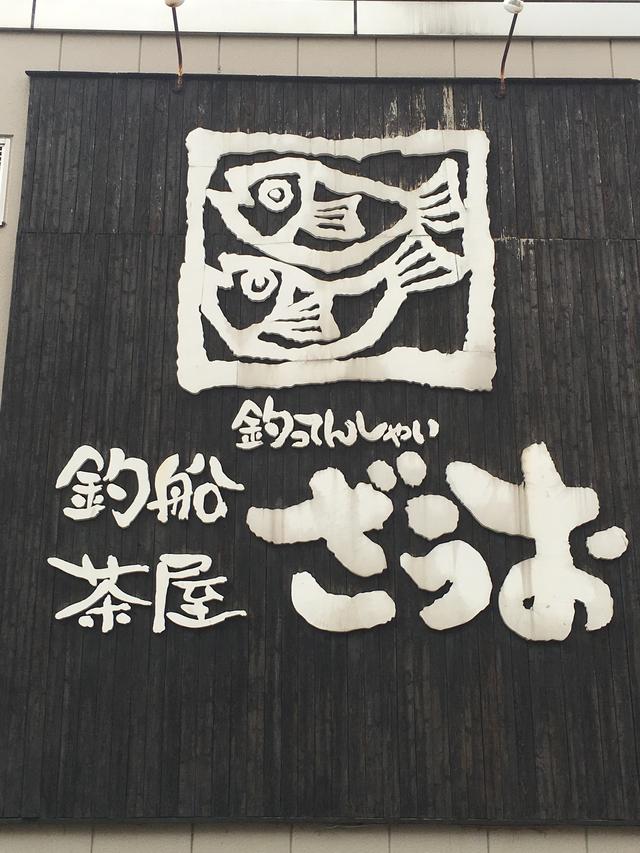 釣ってんしゃい
釣船
茶屋
ざうお